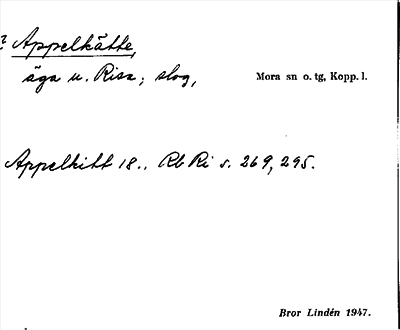 ? Appelkätte,
äga u. Risa; slog,
Mora sn o. tg, Kopp. l.
Appelkitt 18.. Rb Ri s. 269, 295.
Bror Lindén 1947.